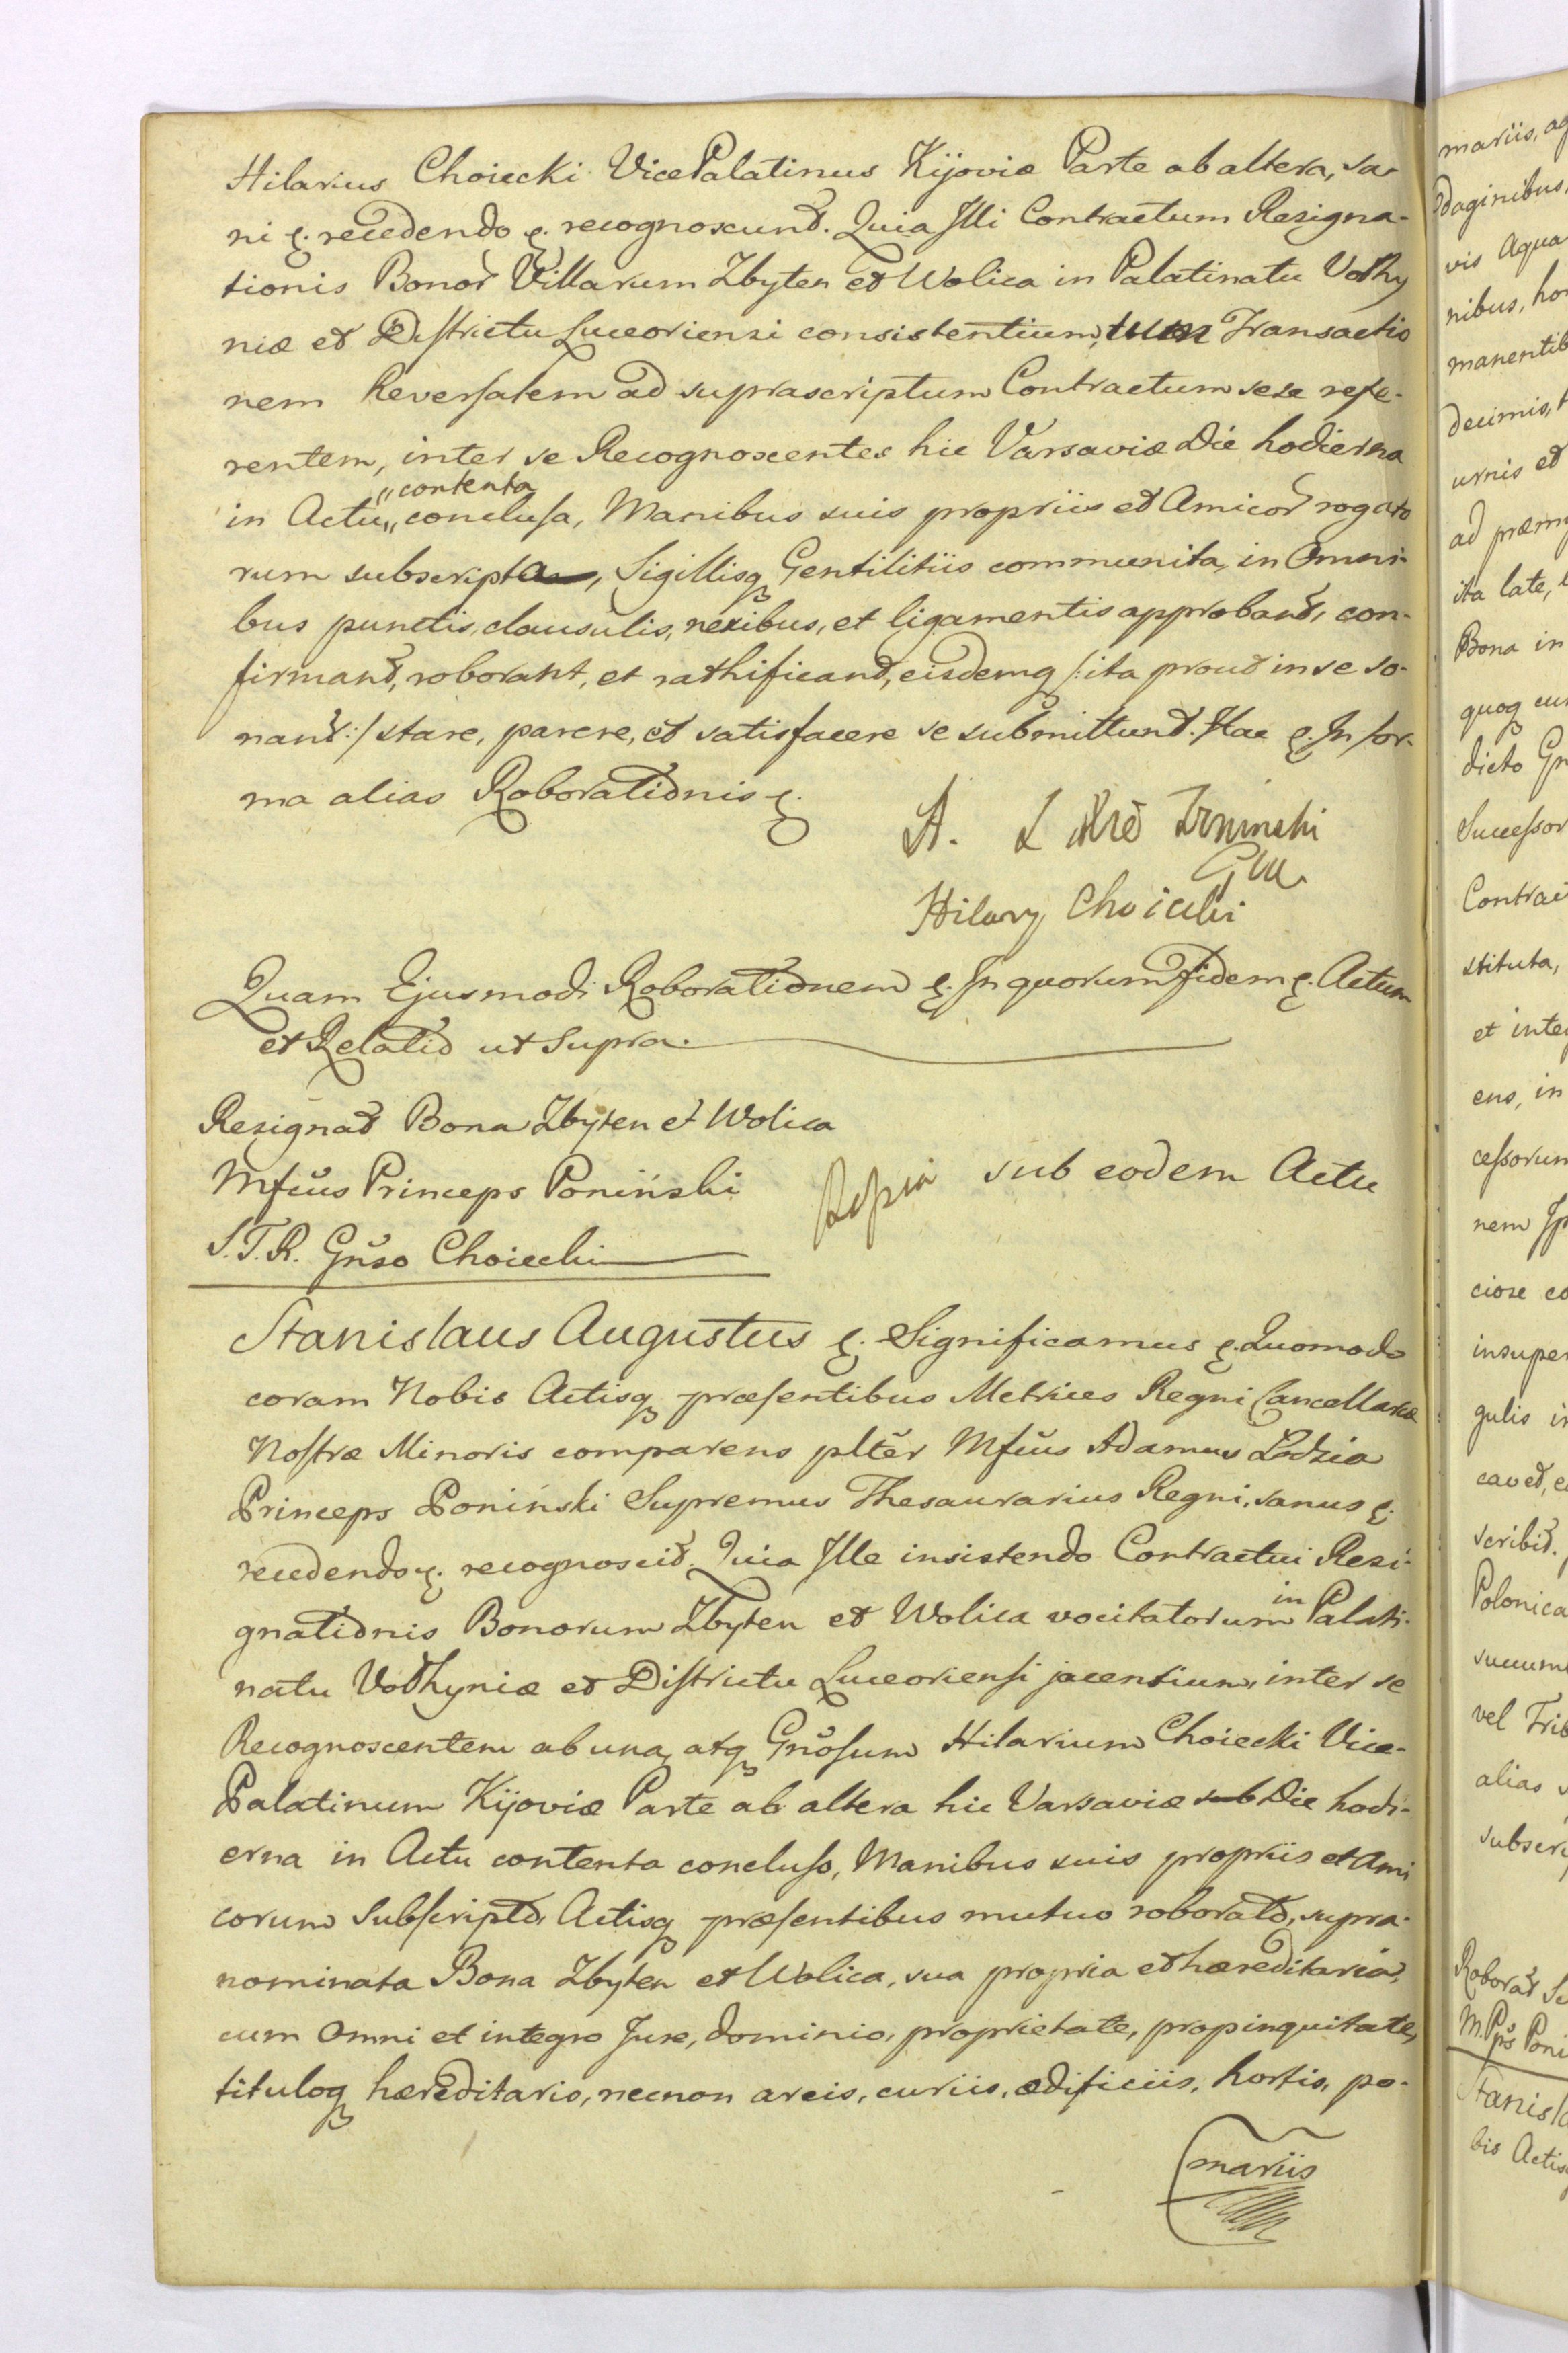 Hilarius Choiecki VicePalatinus Kijoviæ Parte ab altera, sa-
ni &. recedendo &. recognoscunt. Quia Illi Contractum Resigna-
tionis Bonor Villarum Zbyten et Wolica in Palatinatu Volhy
niæ et Districtu Luceoriensi consistentium, tum Transactio
nem Reversalem ad suprascriptum Contractum sese refe-
rentem, inter se Recognoscentes hic Varsaviæ Die hodierna
in Actu „contenta„ conclusa, Manibus suis propriis et Amicor rogato
rum subscripta, Sigillisq Gentilitiis communita, in Omni-
bus punctis, clausulis, nexibus, et ligamentis approbant, con-
firmant, roborant, et rathificant, eisdemq /:ita prout in se so-
nant:/ stare, parere, et satisfacere se submittunt. Hac &. In for-
ma alias Roborationis &.
A. L
Hilary Choiecki
Quam Ejusmodi Roborationem &. In quorum Fidem &. Actum
et Relatio ut Supra.
Resignat Bona Zbyten et Wolica
Mfcus Princeps Poniński
S.T.R. Gnso Choiecki
sub eodem Actu
Stanislaus Augustus &. Significamus &. Quomodo
coram Nobis Actisq præsentibus Metrices Regni Cancellariæ
Nostræ Minoris comparens plter Mfcus Adamus Lodzia
Princeps Poniński Supremus Thesaurarius Regni, sanus &.
recedendo &. recognoscit. Quia Ille insistendo Contractui Resi-
gnationis Bonorum Zbyten et Wolica vocitatorum in Palati-
natu Volhyniæ et Districtu Luceoriensi jacentium, inter se
Recognoscentem ab una, atq Gnosum Hilarium Choiecki Vice-
Palatinum Kijoviæ Parte ab altera hic Varsaviæ sub Die hodi-
erna in Actu contenta concluso, Manibus suis propriis et Ami
corum Subscripto, Actisq præsentibus mutuo roborato, supra-
nominata Bona Zbyten et Wolica, sua propria et hæreditaria,
cum Omni et integro Jure, dominio, proprietate, propinquitate,
tituloq hæreditario, necnon areis, curiis, ædificiis, hortis, po-
mariis
mariis,
daginibus,
vis Aqua
nibus,
manentib
decimis,
urnis et
ad præm
ita late,
Bona in
quoq
dicto
Successor
Contract
stituta,
et integ
ens, in
cessorum
nem
ciose
insuper
gulis
cavet,
scribit.
Polonica
succum
vel Trib
alias
subscri
Roborat
M. Pps Poni
Stanisla
bis Actis